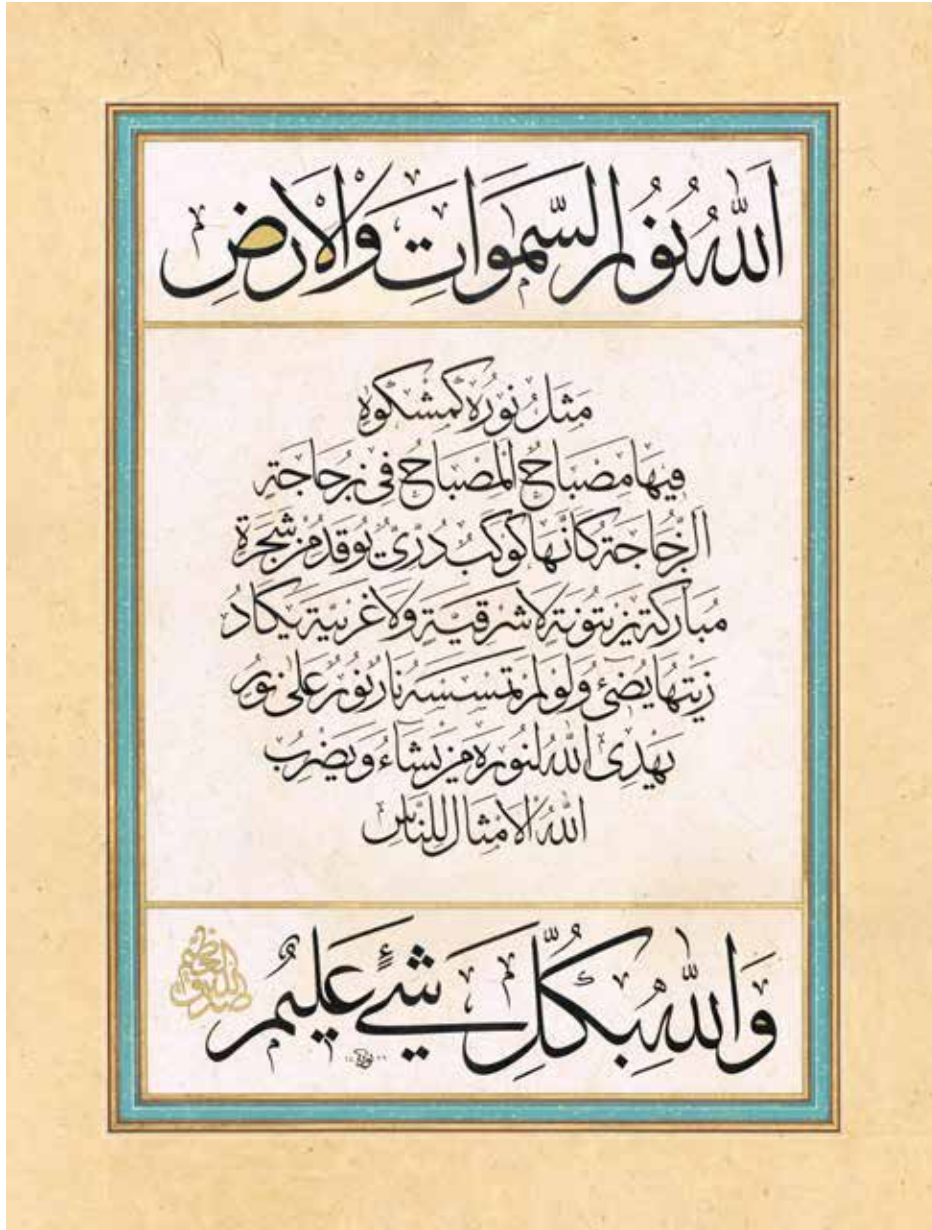 اَللّٰهُ نُورُ السَّمٰوَاتِ وَالْاَرْضِ
مَثَلُ نُورِهِ كَمِشْكٰوةٍ
فِيهَا مِصْبَاحٌ اَلْمِصْبَاحُ فِى زُجَاجَةٍ
اَلزُّجَاجَةُ كَاَنَّهَا كَوْكَبٌ دُرِّىٌّ يُوقَدُ مِنْ شَجَرَةٍ
مُبَارَكَةٍ زَيْتُونَةٍ لَا شَرْقِيَّةٍ وَلَا غَرْبِيَّةٍ يَكَادُ
زَيْتُهَا يُضِىءُ وَلَوْ لَمْ تَمْسَسْهُ نَارٌ نُورٌ عَلٰى نُورٍ
يَهْدِى اللّٰهُ لِنُورِهِ مَنْ يَشَاءُ وَيَضْرِبُ
اللّٰهُ الْاَمْثَالَ لِلنَّاسِ
وَاللّٰهُ بِكُلِّ شَىْءٍ عَلِيمٌ
صدق الله العظيم